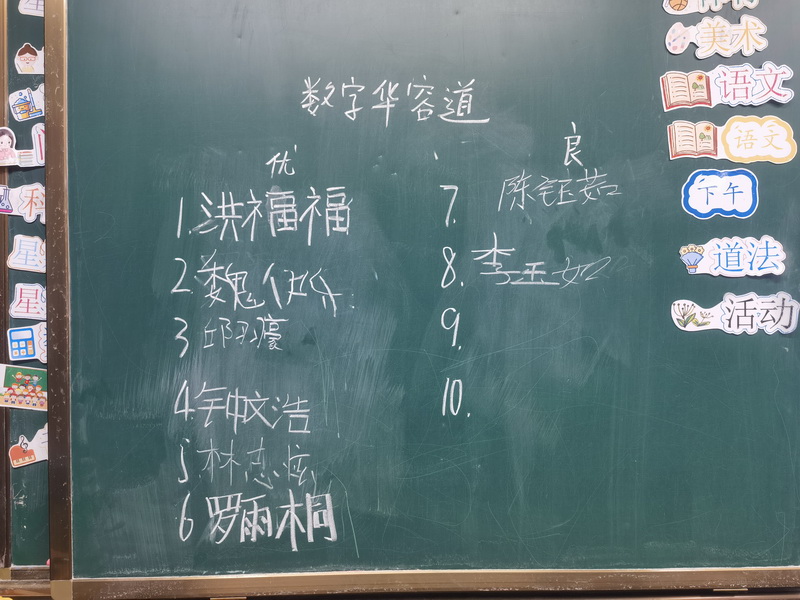 数字华容道
优
良
1.洪福福
2.魏
3 邱羽濠
4.钟文浩
5.林志炫
6 罗雨桐
7.陈钰茹
8.李玉如
9.
10.
美术
语文
语文
下午
道法
活动
科
星
星